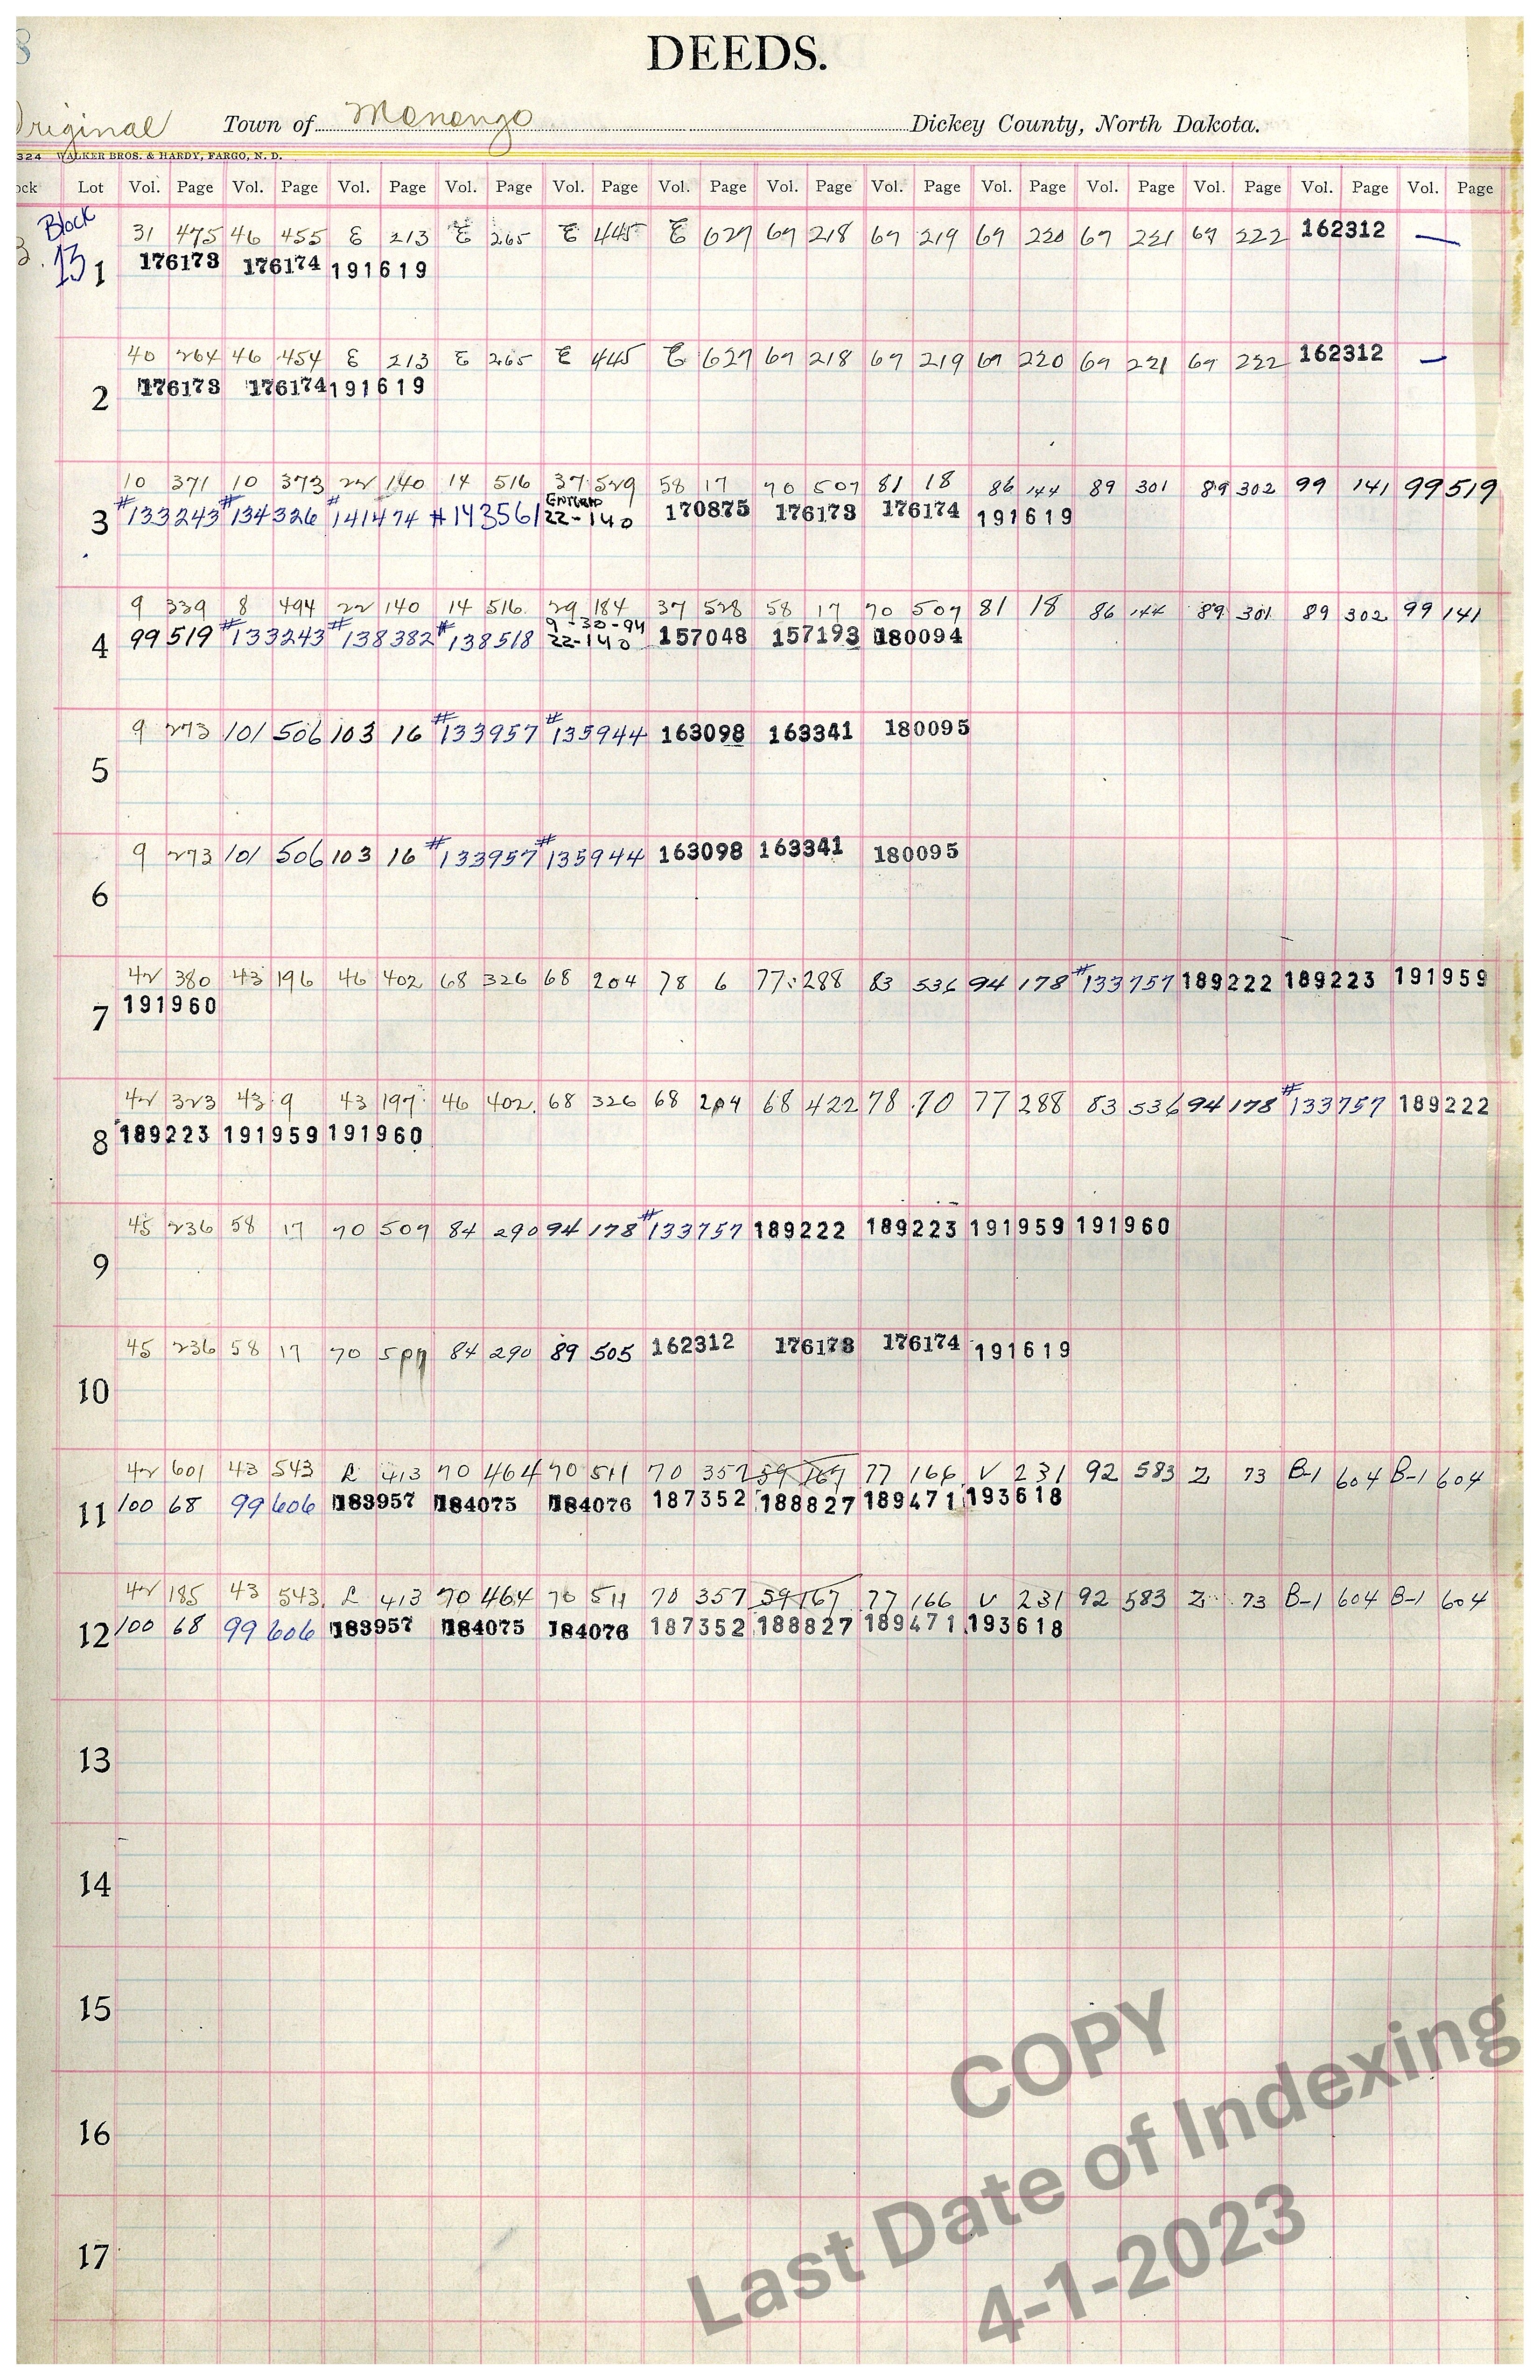 8
DEEDS.
Original Town of Monango Dickey County, North Dakota.
324 WALKER BROS. & HARDY, FARGO, N. D.
ock Lot Vol. Page Vol. Page Vol. Page Vol. Page Vol. Page Vol. Page Vol. Page Vol. Page Vol. Page Vol. Page Vol. Page Vol. Page Vol. Page
Block
31 475 46 455 E 213 E 265 E 445 E 627 67 218 67 219 67 220 67 221 67 222 162312 —
3. 13 1 176173 176174 191619
40 264 46 454 E 213 E 265 E 445 E 627 67 218 67 219 67 220 67 221 67 222 162312 —
2 176173 176174 191619
10 371 10 373 22 140 14 516 37 529 58 17 70 507 81 18 86 144 89 301 89 302 99 141 99 519
3 #133243 #134326 #141474 #143561 ENTERED 22-140 170875 176173 176174 191619
9 339 8 494 22 140 14 516 29 184 37 528 58 17 70 507 81 18 86 144 89 301 89 302 99 141
4 99 519 #133243 #138382 #138518 9-30-94 22-140 157048 157193 180094
9 273 101 506 103 16 #133957 #135944 163098 163341 180095
5
9 273 101 506 103 16 #133957 #135944 163098 163341 180095
6
42 380 43 196 46 402 68 326 68 204 78 6 77 288 83 536 94 178 #133757 189222 189223 191959
7 191960
42 323 43 9 43 197 46 402 68 326 68 204 68 422 78 70 77 288 83 536 94 178 #133757 189222
8 189223 191959 191960
45 236 58 17 70 507 84 290 94 178 #133757 189222 189223 191959 191960
9
45 236 58 17 70 507 84 290 89 505 162312 176173 176174 191619
10
42 601 43 543 L 413 70 464 70 511 70 357 59 167 77 166 V 231 92 583 Z 73 B-1 604 B-1 604
11 100 68 99 606 183957 184075 184076 187352 188827 189471 193618
42 185 43 543 L 413 70 464 70 511 70 357 59 167 77 166 V 231 92 583 Z 73 B-1 604 B-1 604
12 100 68 99 606 183957 184075 184076 187352 188827 189471 193618
13
14
15
16
17
COPY
Last Date of Indexing
4-1-2023